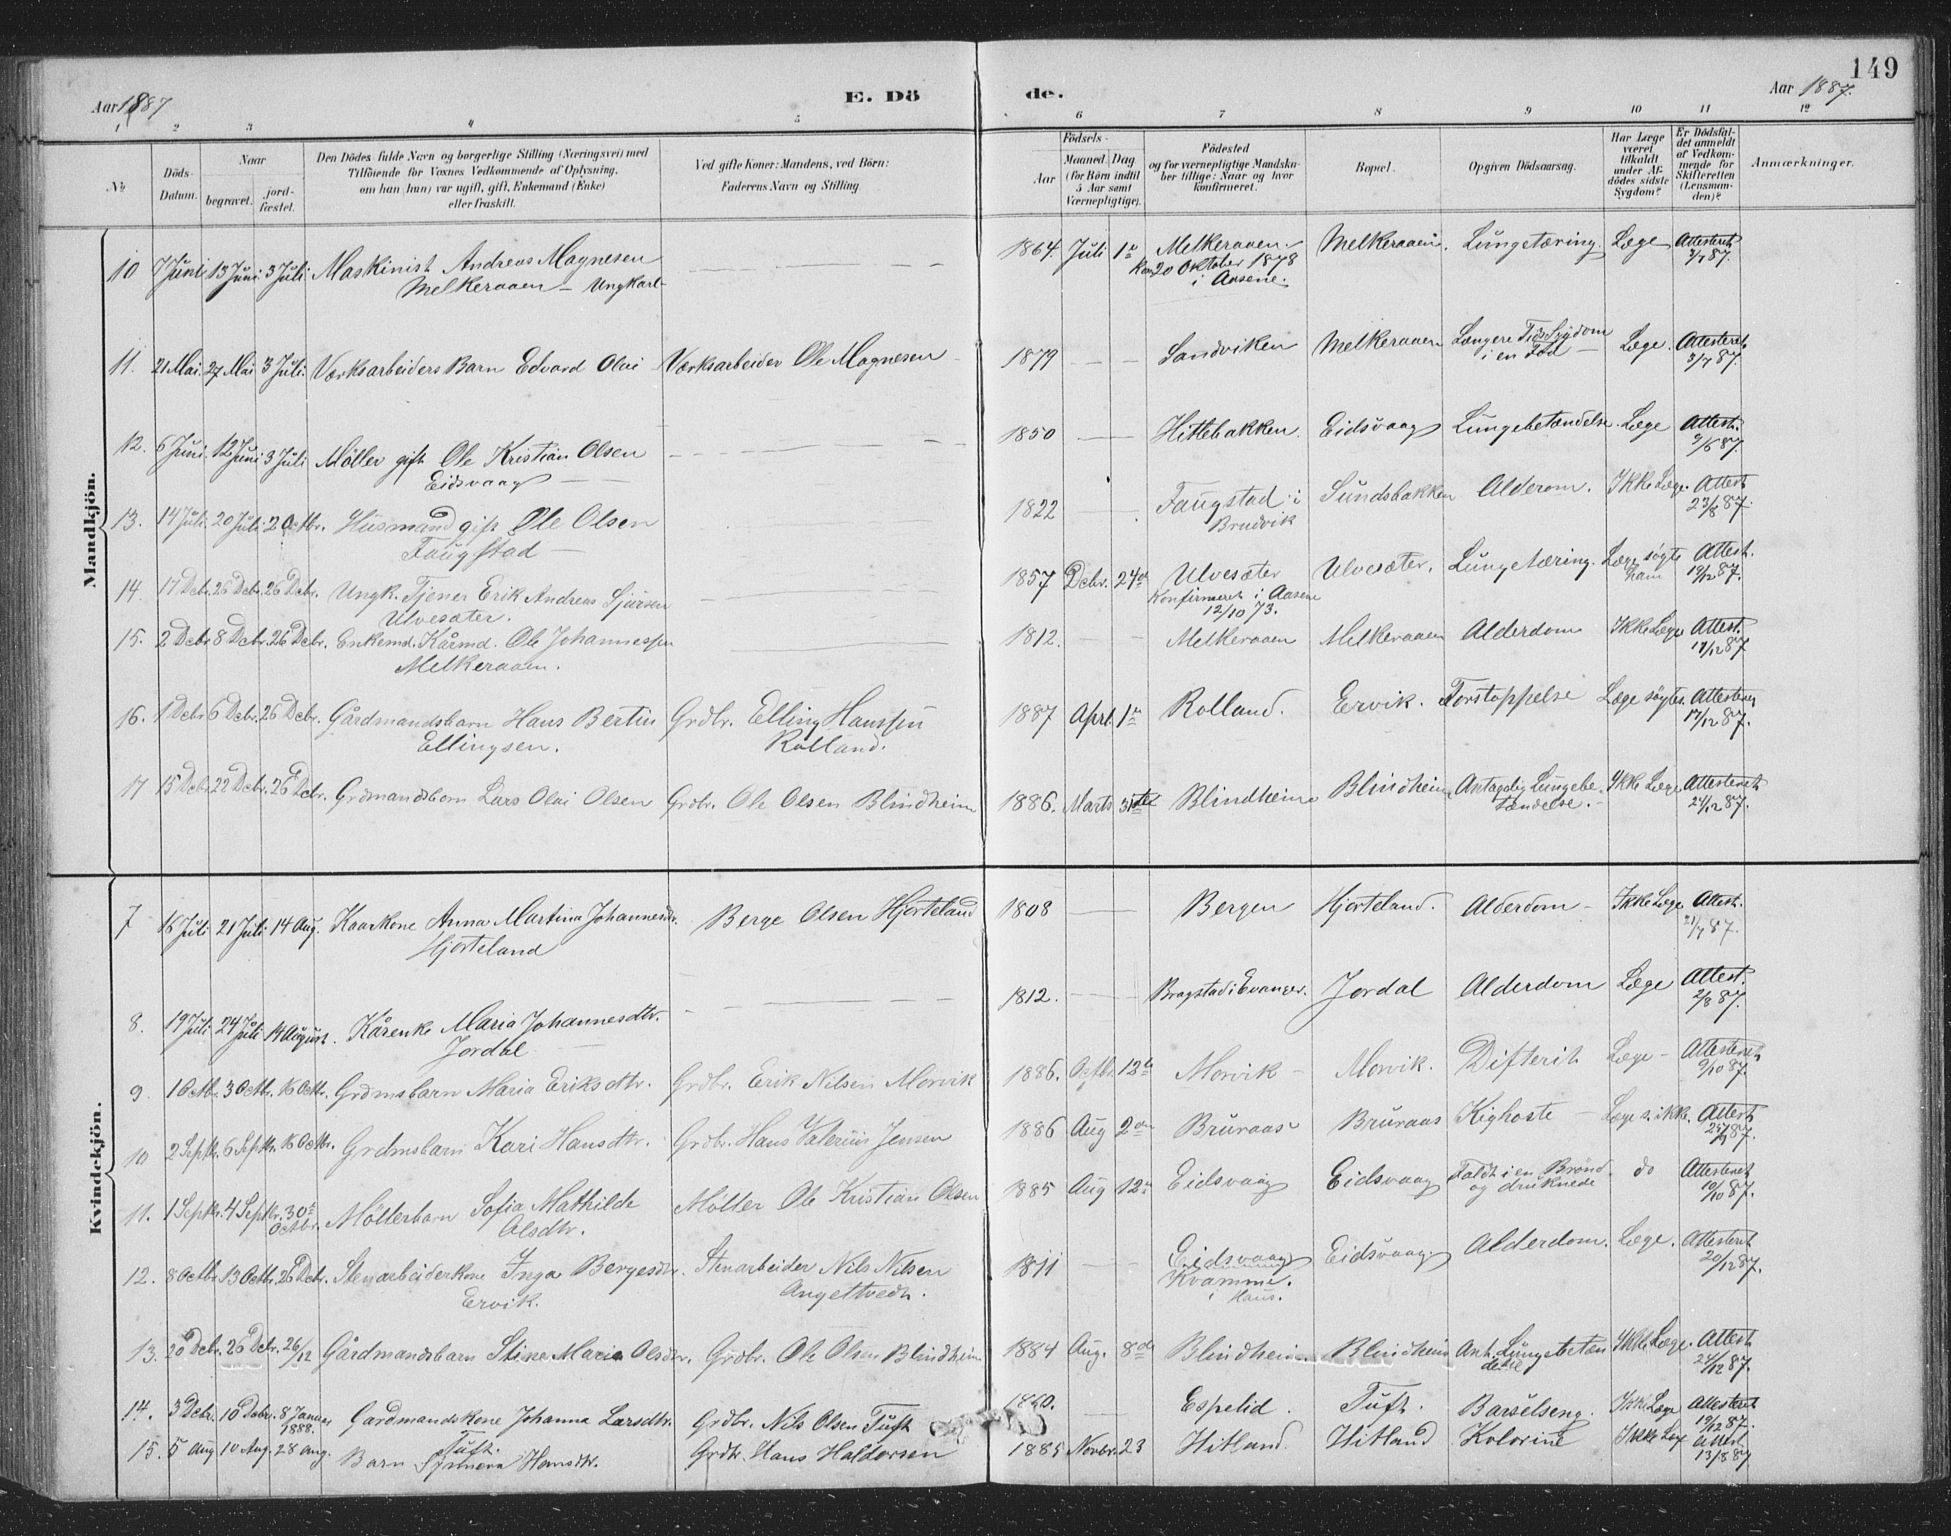 149
Aar 1887
E. Döde.
Aar 1887.
1 2 3 4 5 6 7 8 9 10 11 12
No
Döds-Datum.
Naar
begravet.
jordfæstet.
Den Dödes fulde Navn og borgerlige Stilling (Næringsvei) med
Tilföiende for Voxnes Vedkommende af Oplysning,
om han (hun) var ugift, gift, Enkemand (Enke)
eller fraskilt.
Ved gifte Koner: Mandens, ved Börn:
Faderens Navn og Stilling
Födsels-
Aar
Maaned. Dag
(for Börn indtil
5 Aar samt
Værnepligtige).
Födested
og for værnepligtige Mandskaber tillige: Naar og hvor
konfirmeret.
Bopæl.
Opgiven Dödsaarsag.
Har Læge været tilkaldt under Afdödes sidste Sygdom?
Er Dödsfaldet anmeldt af Vedkommende for Skifteretten (Lensmanden)?
Anmærkninger.
Mandkjön.
10 7 Juni 13 Juni 3 Juli Maskinist Andreas Magnesen 1864. Juli 1ste Melkeraaen. Melkeraaen. Lungetæring. Læge Attesteret
Melkeraaen - Ungkarl - Kon 20 Oktober 1878 3/7 87.
i Aasene.
11. 21 Mai. 27 Mai 3 Juli. Værksarbeiders Barn Edvard Olai Værksarbeider Ole Magnesen 1879 Sandviken Melkeraaen Længere Tids Sygdom Læge. Attesteret
i en Fod 3/7 87.
12. 6 Juni. 12 Juni 3 Juli Möller gift Ole Kristian Olsen 1850 Hittebakken. Eidsvaag Lungebetændelse. Læge Attest.
Eidsvaag 9/6 87.
13. 14 Juli. 20 Juli. 2 Octbr. Husmand gift Ole Olsen 1822 Faugstad i Sundsbakken Alderom. Ikke Læge. Attest
Faugstad Brudvik 23/8 87.
14. 17 Debr. 26 Debr. 26 Debr. Ungk. Tjener Erik Andreas Sjursen 1857 Debr. 24de Ulvesæter Ulvesæter. Lungetæring. Læge søgte ham Attest.
Ulvesæter. Konfirmeret i Aasene 19/12 87.
12/10 73.
15. 2 Debr 8 Debr. 26 Debr. Enkemd. Kårmd. Ole Johannessen 1812. Melkeraaen Melkeraaen Alderdom Ikke Læge Attest.
Melkeraaen. 17/12 87
16. 1 Debr 6 Debr. 26 Debr. Gårdmandsbarn Hans Bertin Grdbr. Elling Hanssen 1887 Aprl. 1ste Rolland. Ervik. Forstoppelse Læge søgtes. Attesteret
Ellingsen. Rolland. 17/12 87.
17 15 Debr. 22 Debr. 26 Debr. Grdmandsbarn Lars Olai Olsen Grdbr. Ole Olsen Blindheim 1886. Marts 31te Blindheim Blindheim Antagelig Lungebe- Ikke Læge Attesteret
tændelse. 24/12 87.
Kvindekjön.
7 16 Juli 21 Juli 14 Aug. Kaarkone Anna Martina Johannesdtr. Berge Olsen Hjorteland 1808 Bergen Hjorteland. Alderdom - Ikke Læge Attest.
Hjorteland 21/7 87.
8. 19 Juli 24 Juli 14 August. Kårenke Maria Johannesdtr. 1812. Bragstad i Evanger. Jordal Alderdom Læge Attest.
Jordal 2/8 87.
9. 1 Octbr. 3 Octbr. 16 Octbr. Grdmsbarn Maria Eriksdtr. Grdbr. Erik Nilsen Morvik 1886. Octbr. 12te Morvik Morvik. Difterit Læge - Attesteret
9/10 87.
10 2 Septbr. 6 Septbr. 16 Octbr. Grdmsbarn Kari Hansdtr. Grdbr. Hans Valerius Jensen 1886 Aug 2den Bruraas Bruraas Kighoste Læge s. ikke. Attest
87.
11. 1 Septbr. 4 Septbr. 30te Octbr. Möllerbarn Sofia Mathilde Möller Ole Kristian Olsen 1885 Aug 12te Eidsvaag Eidsvaag Faldt i en Brönd do Attesteret
Olsdtr. og druknede 19/10 87.
12. 8 Octbr 13 Octbr. 26 Debr. Stenarbeiderkone Inga Bergesdtr. Stenarbeider Nils Nilsen 1811 Eidsvaag Eidsvaag. Alderdom. Læge. Attesteret
Ervik. Angeltvedt. Kvamme. 20/12 87.
i Haus.
13. 20 Debr. 26 Debr. 26/12 Gårdmandsbarn Stina Maria Olsdtr. Grdbr. Ole Olsen Blindheim 1884 Aug. 8de Blindheim Blindheim Ant. Lungebetæn Ikke Læge. Attest
delse 24/12 87.
14. 3 Debr. 10 Debr. 8 Januar 1888. Gardmandskone Johanna Larsdtr. Grdbr. Nils Olsen Tuft 1860. Espelid. Tuft. Barselseng. Ikke Læge Attesteret
Tuft. 19/12 87.
15. 5 Aug 10 Aug. 28 Aug. Barn Synneva Hansdtr. Grdbr. Hans Haldorsen 1885 Novbr. 23 Hitland. Hitland Kolorine Ikke Læge Attest
13/8 87